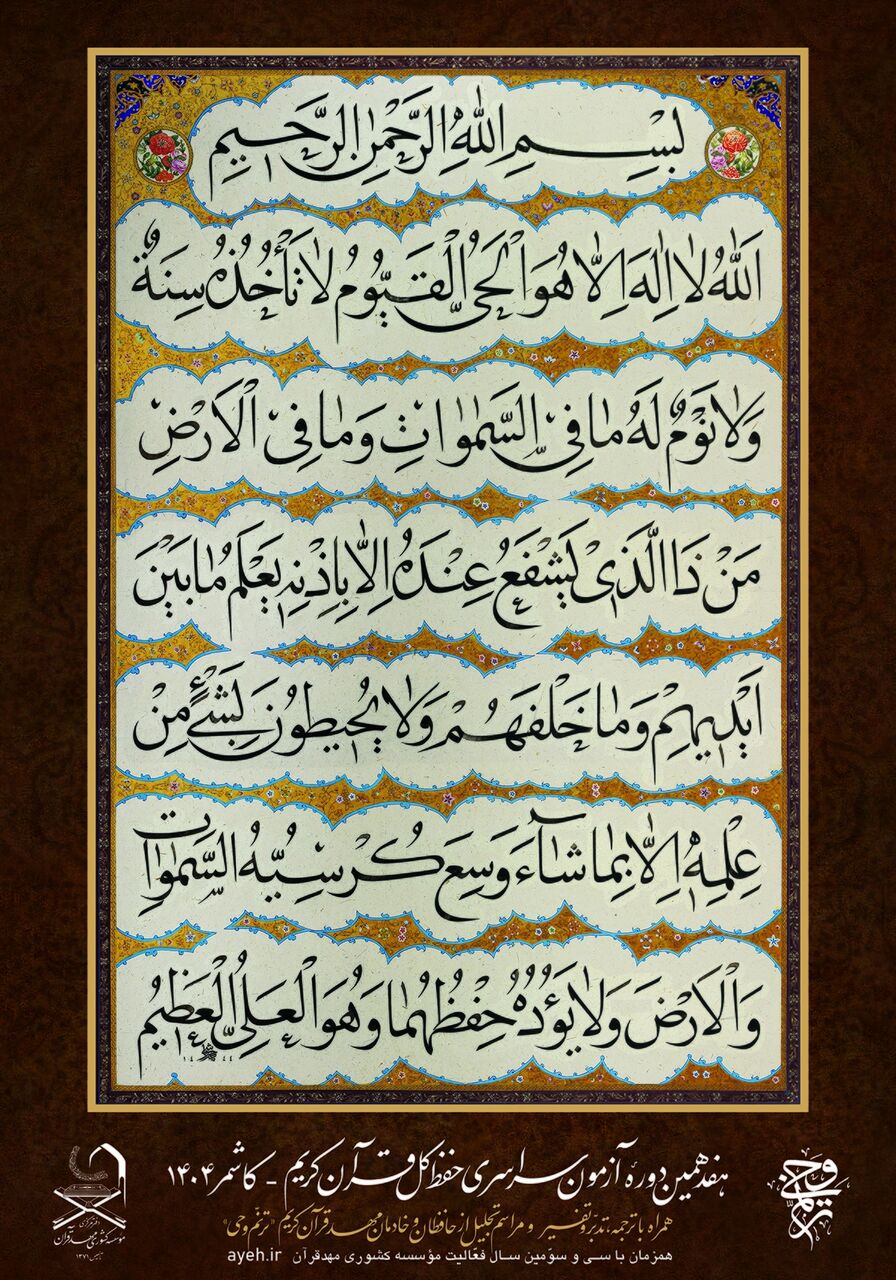 بِسْمِ اللهِ الرَّحْمٰنِ الرَّحِيمِ
اَللهُ لَا اِلٰهَ اِلَّا هُوَ الْحَيُّ الْقَيُّومُ لَا تَأْخُذُهُ سِنَةٌ
وَلَا نَوْمٌ لَهُ مَا فِي السَّمٰوَاتِ وَمَا فِي الْاَرْضِ
مَنْ ذَا الَّذِي يَشْفَعُ عِنْدَهُ اِلَّا بِاِذْنِهِ يَعْلَمُ مَا بَيْنَ
اَيْدِيهِمْ وَمَا خَلْفَهُمْ وَلَا يُحِيطُونَ بِشَيْءٍ مِنْ
عِلْمِهِ اِلَّا بِمَا شَآءَ وَسِعَ كُرْسِيُّهُ السَّمٰوَاتِ
وَالْاَرْضَ وَلَا يَؤُدُهُ حِفْظُهُمَا وَهُوَ الْعَلِيُّ الْعَظِيمُ
۱۴۴۴
هفدهمین دورهٔ آزمون سراسری حفظ کل قرآن کریم - کاشمر ۱۴۰۴
همراه با ترجمه، تدبر و تفسیر و مراسم تجلیل از حافظان و خادمان مهد قرآن کریم "ترنّم وحی"
همزمان با سی و سوّمین سال فعّالیت مؤسسه کشوری مهدقرآن ayeh.ir
ترنم وحی
دفتر مرکزی
مؤسسه کشوری مهد قرآن
تأسیس ۱۳۷۱